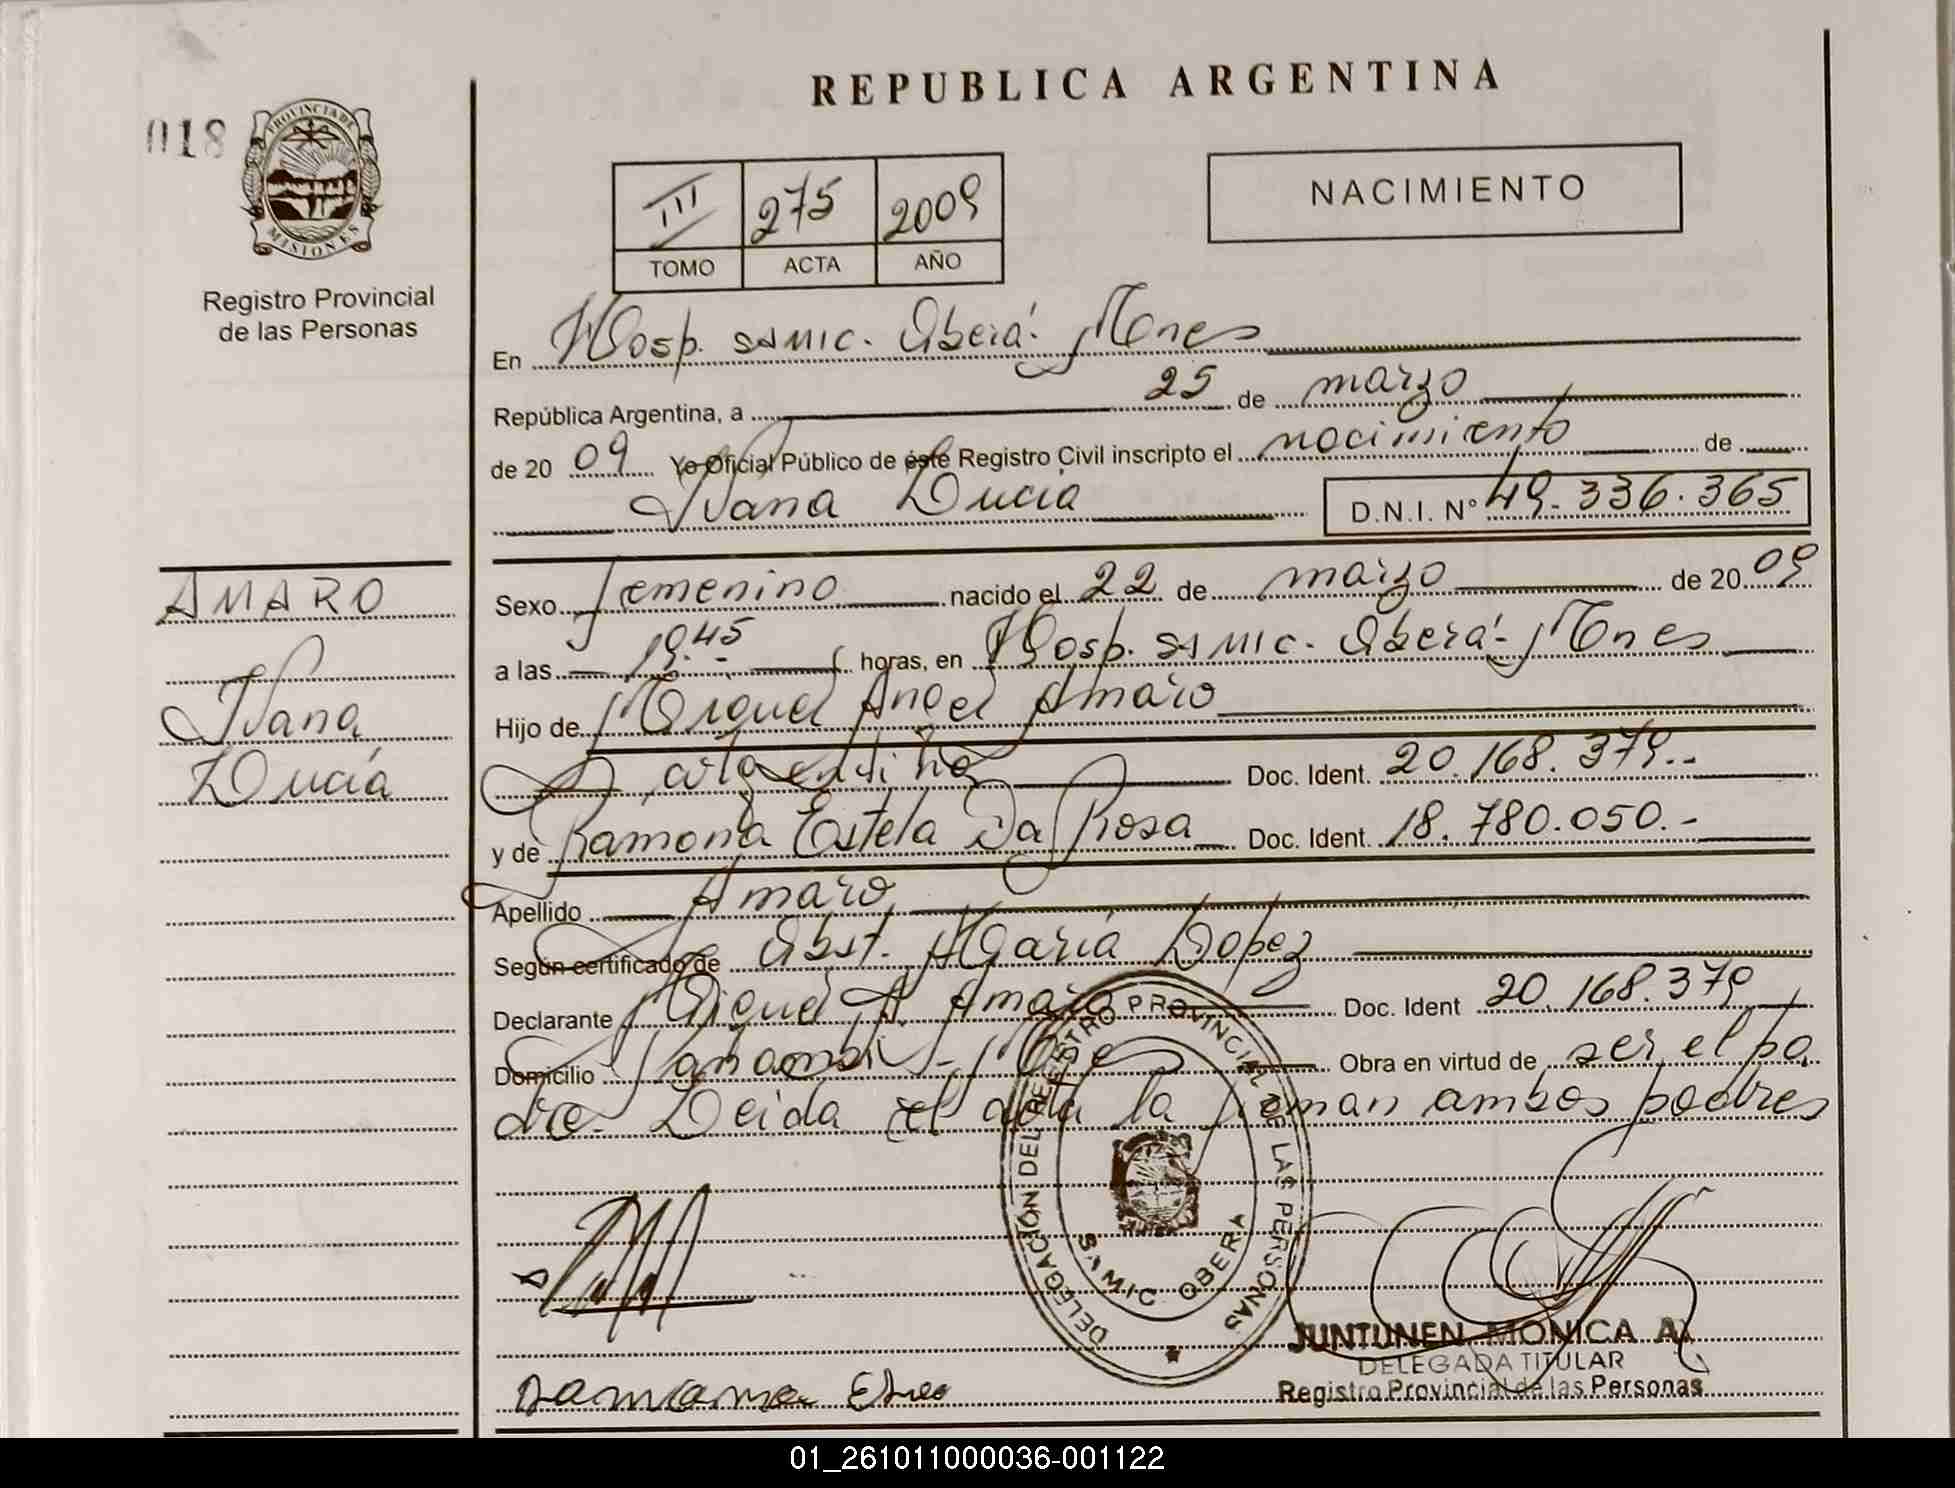 REPUBLICA ARGENTINA
018
PROVINCIA DE
MISIONES
Registro Provincial
de las Personas
III 275 2009
TOMO ACTA AÑO
NACIMIENTO
En Hosp. SAMIC. Oberá. Mones
República Argentina, a 25 de marzo
de 20 09 Yo Oficial Público de éste Registro Civil inscripto el nacimiento de
Ivana Lucía D.N.I. N° 49.336.365
AMARO
Ivana
Lucía
Sexo femenino nacido el 22 de marzo de 2009
a las 19.45 horas, en Hosp. SAMIC. Oberá. Mones
Hijo de Miguel Angel Amaro
Argentina Doc. Ident. 20.168.379.-
y de Ramona Estela Da Rosa Doc. Ident. 18.780.050.-
Apellido Amaro
Según certificado de Obst. María Lopez
Declarante Miguel A. Amaro Doc. Ident 20.168.379
Domicilio Panambí - Obra en virtud de ser el pa
dre. Leida el acta la firman ambos padres
DELEGACIÓN DEL REGISTRO PROVINCIAL DE LAS PERSONAS
SAMIC OBERA
JUNTUNEN MONICA A.
DELEGADA TITULAR
Registro Provincial de las Personas
01_261011000036-001122